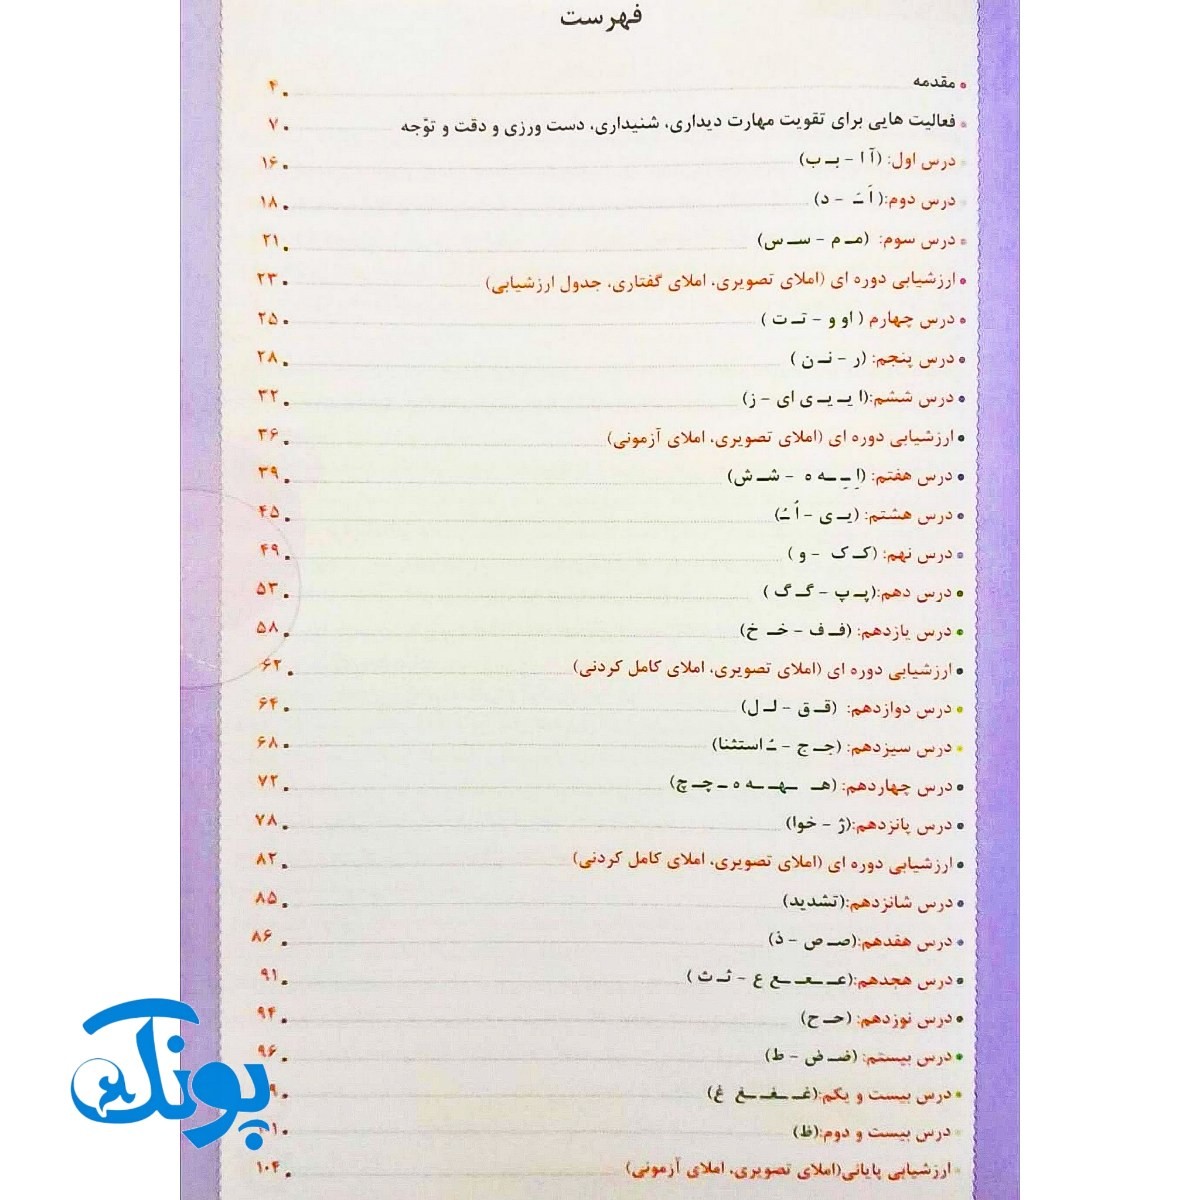 فهرست
مقدمه ۴
فعالیت هایی برای تقویت مهارت دیداری، شنیداری، دست ورزی و دقت و توّجه ۷
درس اول: (آ ا - بـ ب) ۱۶
درس دوم:( اَ ـَ - د) ۱۸
درس سوم: (مـ م - سـ س) ۲۱
ارزشیابی دوره ای (املای تصویری، املای گفتاری، جدول ارزشیابی) ۲۳
درس چهارم ( او و - تـ ت ) ۲۵
درس پنجم: (ر - نـ ن ) ۲۸
درس ششم:(ا یـ یـ ی ای - ز) ۳۲
ارزشیابی دوره ای (املای تصویری، املای آزمونی) ۳۶
درس هفتم: (اِ ـِ ـه ه - شـ ش) ۳۹
درس هشتم: (یـ ی - اُ ـُ) ۴۵
درس نهم: (کـ ک - و ) ۴۹
درس دهم:(پـ پ - گـ گ ) ۵۳
درس یازدهم: (فـ ف - خـ خ) ۵۸
ارزشیابی دوره ای (املای تصویری، املای کامل کردنی) ۶۲
درس دوازدهم: (قـ ق - لـ ل) ۶۴
درس سیزدهم: (جـ ج - ـُ استثنا) ۶۸
درس چهاردهم: (هـ ـهـ ـه ه ـ چـ چ) ۷۲
درس پانزدهم:(ژ - خوا) ۷۸
ارزشیابی دوره ای (املای تصویری، املای کامل کردنی) ۸۲
درس شانزدهم:(تشدید) ۸۵
درس هفدهم:(صـ ص - ذ) ۸۶
درس هجدهم:(عـ ـعـ ـع ع - ثـ ث ) ۹۱
درس نوزدهم: (حـ ح) ۹۴
درس بیستم: (ضـ ض - ط) ۹۶
درس بیست و یکم:(غـ ـغـ ـغ غ)
درس بیست و دوم:(ظ)
ارزشیابی پایانی(املای تصویری، املای آزمونی) ۱۰۴
پونک